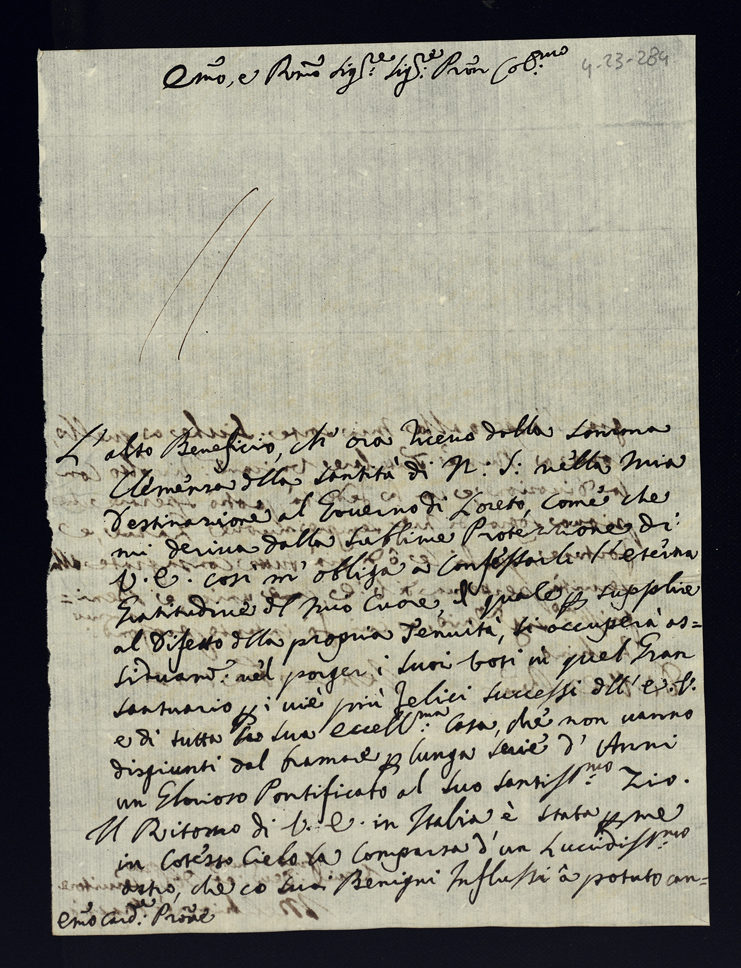 Emõ, e Rmõ Sig.re Sig.re Pron Col.mo
4-23-284
L'alto Beneficio, ch' ora ricevo dalla somma
Clemenza della Santità di N: S: nella mia
Destinazione al Governo di Loreto, come che
mi deriva dalla sublime Protezione di
V. E. così m' obliga a Confessarle l'eterna
Gratitudine del mio Cuore, il quale p supplire
al Difetto della propria Tenuità, si occuperà as=
siduam.e nel porger i suoi voti in quel Gran
santuario p i vie più felici successi dell' E. V.
e di tutta la sua eccell.ma Casa, che non vanno
disgiunti dal bramare p lunga serie d' Anni
un Glorioso Pontificato al suo santiss.mo Zio.
Il Ritorno di V. E. in Italia è stata p me
in Cotesto Cielo la Comparsa d' un Lucidiss.mo
Astro, che co suoi Benigni Influssi à potuto can=
Emõ Card: Prone